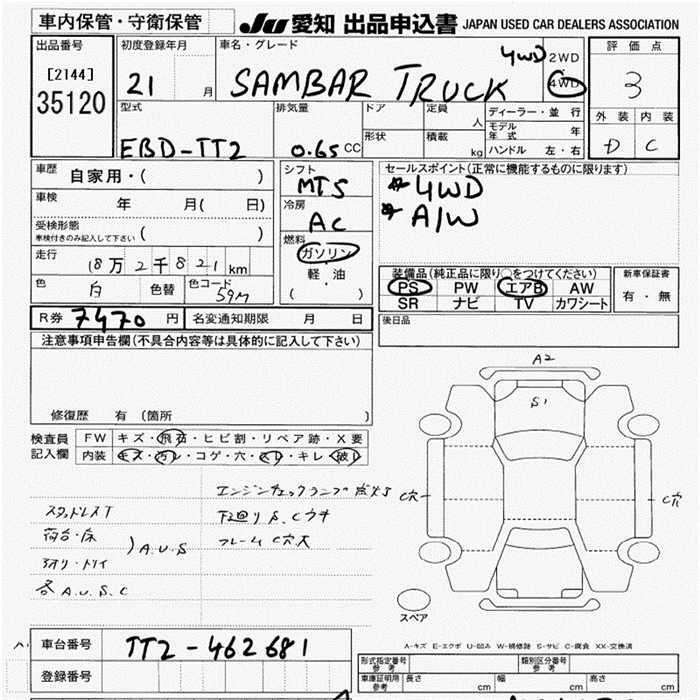 車内保管・守衛保管
JU 愛知 出品申込書 JAPAN USED CAR DEALERS ASSOCIATION
出品番号
[2144]
35120
初度登録年月
21 月
車名・グレード
SAMBAR TRUCK 4WD
2WD
4WD
評価点
3
外装 内装
D C
型式
EBD-TT2
排気量
0.65 CC
ドア
形状
定員
人
積載
kg
ディーラー・並行
モデル年式 年
ハンドル 左・右
車歴 自家用・( )
車検 年 月( 日)
受検形態
車検付きのみ記入して下さい ( )
走行 18万2千821km
色 白 色替 色コード 59M
シフト
MT5
冷房
AC
燃料
ガソリン
軽・油
( )
セールスポイント(正常に機能するものに限ります)
* 4WD
* A/W
装備品(純正品に限り○をつけてください)
PS PW エアB AW
SR ナビ TV カワシート
新車保証書
有・無
R券 7470 円 名変通知期限 月 日
後日品
注意事項申告欄(不具合内容等は具体的に記入して下さい)
修復歴 有 (箇所 )
検査員
記入欄
FW キズ・飛石・ヒビ割・リペア跡・X要
内装 キズ・汚レ・コゲ・穴・スレ・キレ・破レ
エンジンチェックランプ点灯
スタッドレスT 下廻りS.Cウキ
荷台・床 フレームC穴大
アオリ・トリイ
)A.U.S
各A.U.S.C
A2
S1
C穴
C穴
スペア
A-キズ E-エクボ U-凹み W-補修跡 S-サビ C-腐食 XX-交換済
車台番号 TT2-462681
登録番号
型式指定番号
参考
類別区分番号
参考
車庫証明用
参考
長さ cm 幅 cm 高さ cm